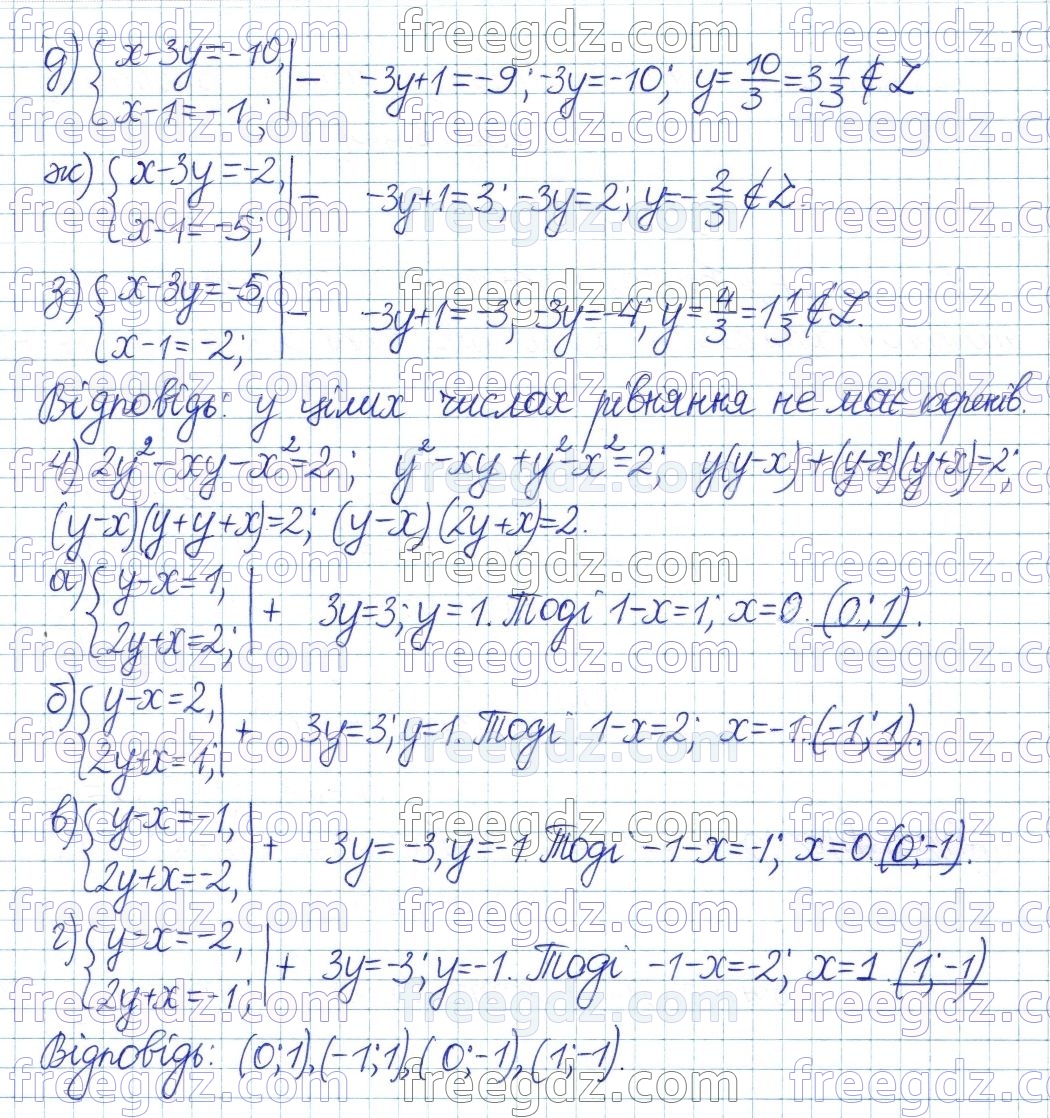 д) { x-3y=-10, x-1=-1; | - -3y+1=-9; -3y=-10; y=10/3=3 1/3 ∉ Z
ж) { x-3y=-2, x-1=-5; | - -3y+1=3; -3y=2; y=-2/3 ∉ Z.
з) { x-3y=-5, x-1=-2; | - -3y+1=-3; -3y=-4; y=4/3=1 1/3 ∉ Z.
Відповідь: у цілих числах рівняння не має коренів.
4) 2y²-xy-x²=2; y²-xy+y²-x²=2; y(y-x)+(y-x)(y+x)=2;
(y-x)(y+y+x)=2; (y-x)(2y+x)=2.
а) { y-x=1, 2y+x=2; | + 3y=3; y=1. Тоді 1-x=1; x=0. (0; 1).
б) { y-x=2, 2y+x=1; | + 3y=3; y=1. Тоді 1-x=2; x=-1. (-1; 1).
в) { y-x=-1, 2y+x=-2, | + 3y=-3; y=-1 Тоді -1-x=-1; x=0. (0;-1).
г) { y-x=-2, 2y+x=-1; | + 3y=-3; y=-1. Тоді -1-x=-2; x=1. (1;-1)
Відповідь: (0;1), (-1;1), (0;-1), (1;-1).
freegdz.com